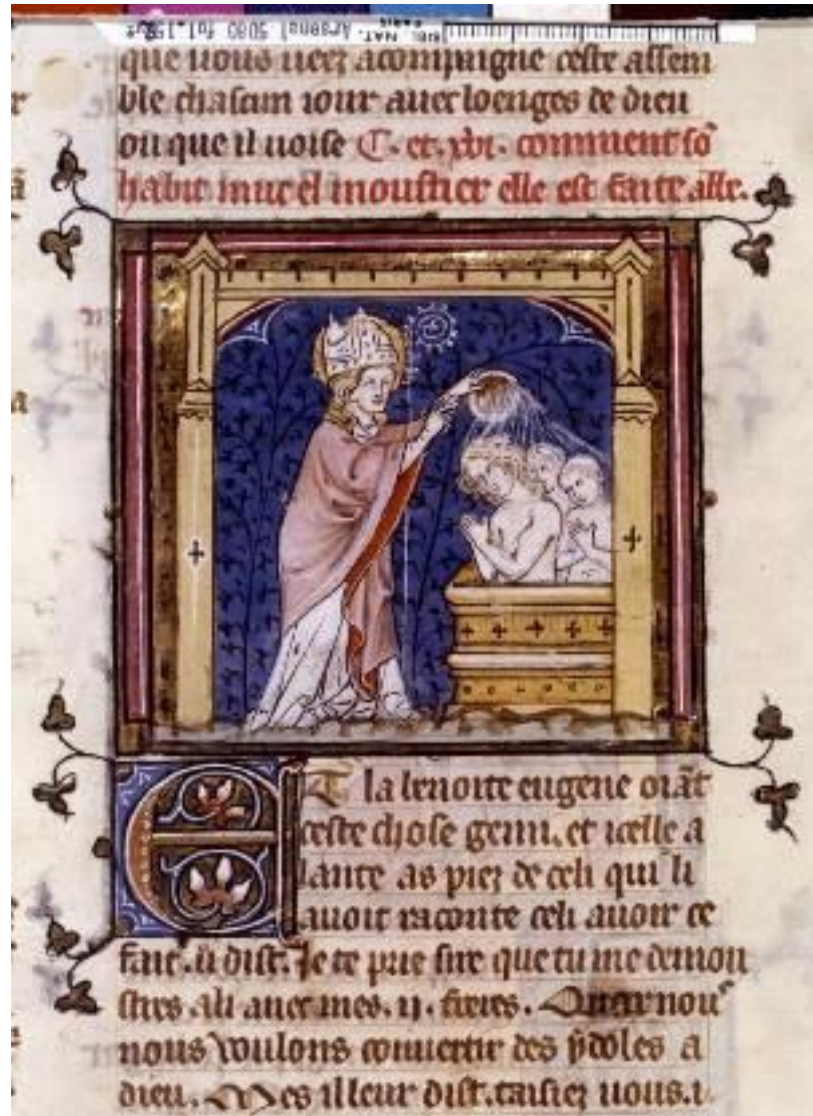 BIBL. NAT. PARIS Arsenal 5080 fol. 159
que uous ueez acompaigne ceste assem
ble chascun iour auec loenges de dieu
ou que il uoise C. et. xvi. comment sō
habit mue el moustier elle est faite alle.
Et la benoite eugene oiāt
ceste chose gemi. et icelle a
lante as piez de celi qui li
auoit raconte celi auoir ce
fait. li dist. Je te prie sire que tu me demon
stres a li auec mes .ii. freres. Quer nous
nous voulons conuertir des ydoles a
dieu. Mes il leur dist. taisiez uous.